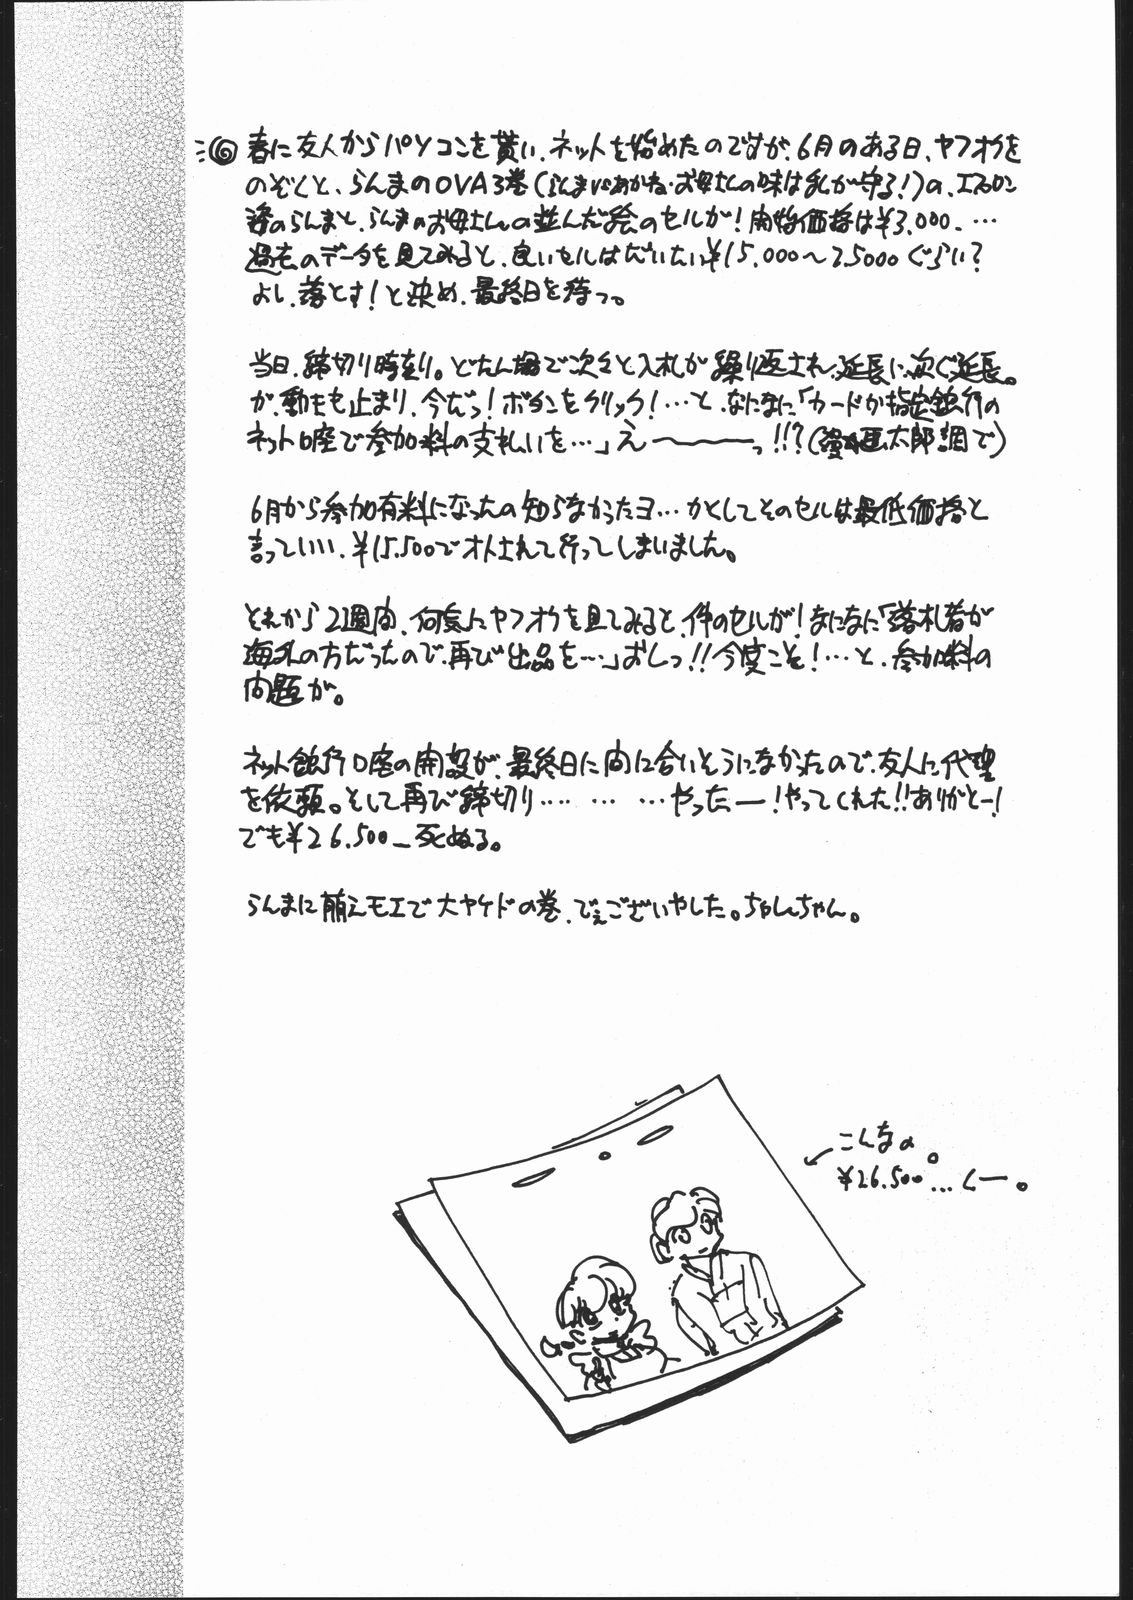 春に友人からパソコンを貰い、ネットを始めたのですが、6月のある日、ヤフオクを
のぞくと、らんまのOVA3巻(らんまVSあかね・お母さんの味は私が守る!)の、エプロン
姿のらんまと、らんまのお母さんの並んだ絵のセルが!開始価格は¥3.000、…
過去のデータを見てみると、良いセルはだいたい¥15.000〜25000ぐらい?
よし、落とす!と決め、最終日を待つ。
当日、締切り時刻。どたん場で次々と入札が繰り返され、延長に次ぐ延長。
が、動きも止まり、今だっ!ボタンをクリック!…と、なになに「カードか指定銀行の
ネット口座で参加料の支払いを…」え〜〜〜っ!!?(漫☆画太郎調で)
6月から参加有料になったの知らなかったヨ…かくしてそのセルは最低価格と
言っていい、¥15.500でオトされて行ってしまいました。
それから2週間、何気にヤフオクを見てみると、件のセルが!なになに「落札者が
海外の方だったので、再び出品を…」おしっ!!今度こそ!…と、参加料の
問題が。
ネット銀行口座の開設が、最終日に間に合いそうになかったので、友人に代理
を依頼。そして再び締切り… … …やったー!やってくれた!!ありがとー!
でも¥26.500_死ぬる。
らんまに萌えモエで大ヤケドの巻、でぇございやした。ちゃんちゃん。
こんなの。
¥26.500…くー。